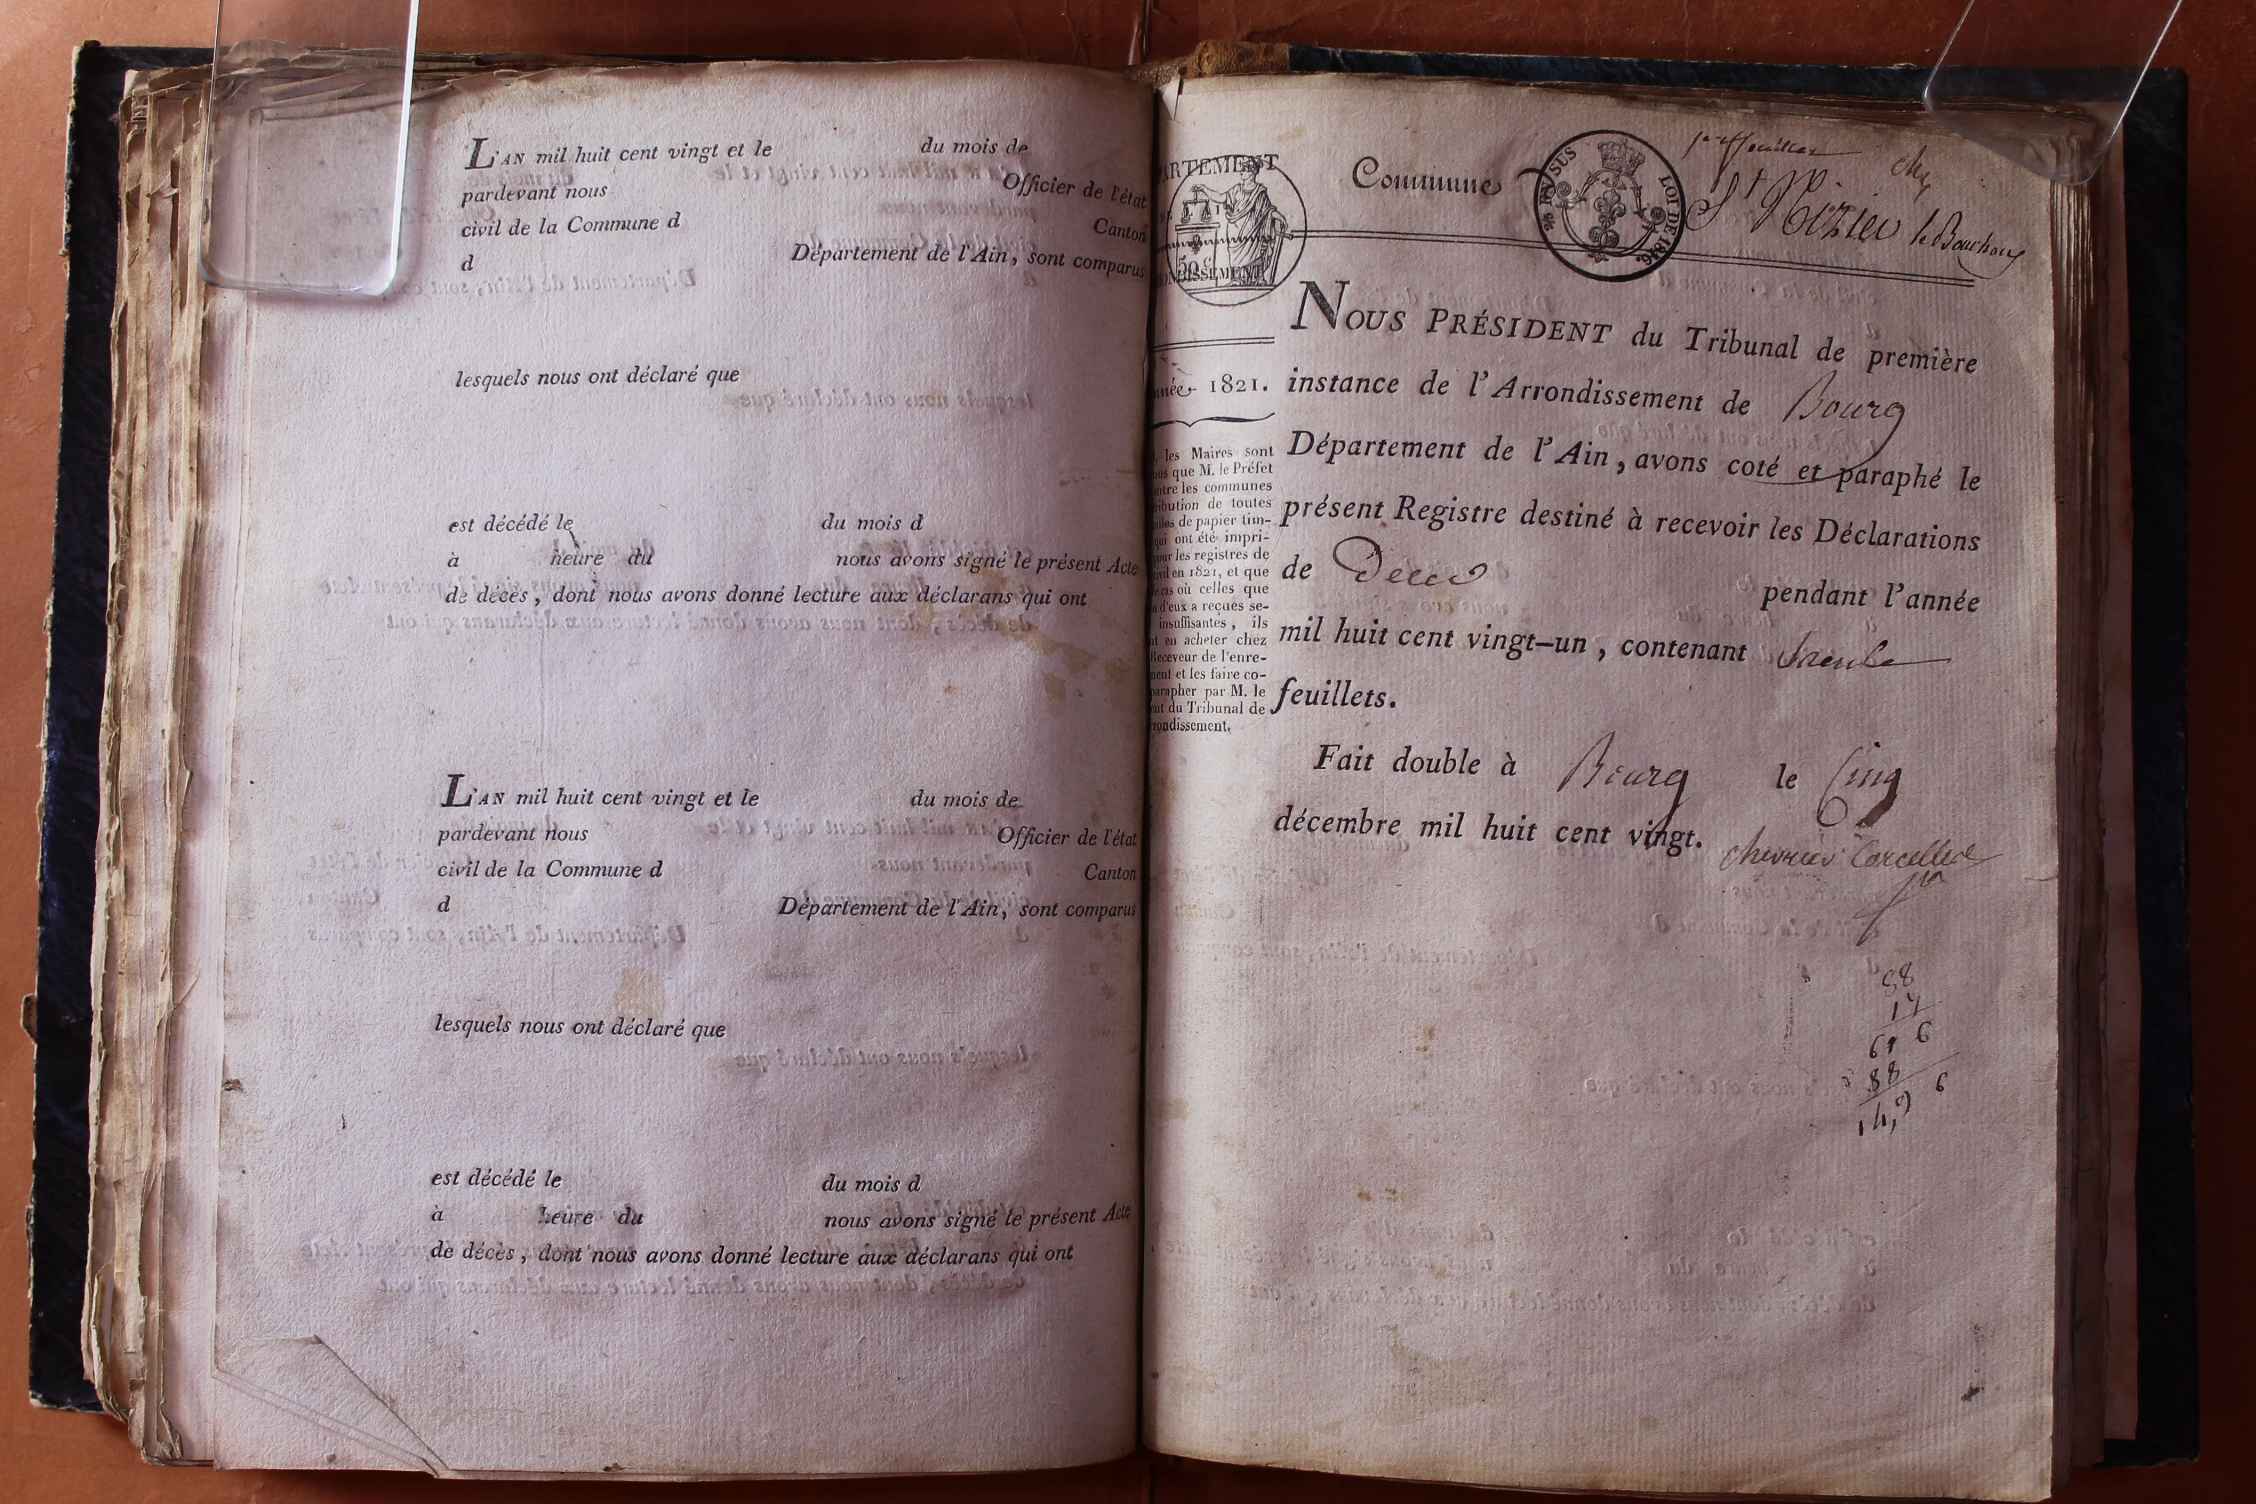 L'AN mil huit cent vingt et le du mois de
pardevant nous Officier de l'état
civil de la Commune d Canton
d Département de l'Ain, sont comparus
lesquels nous ont déclaré que
est décédé le du mois d
à heure du nous avons signé le présent Acte
de décès, dont nous avons donné lecture aux déclarans qui ont
L'AN mil huit cent vingt et le du mois de
pardevant nous Officier de l'état
civil de la Commune d Canton
d Département de l'Ain, sont comparus
lesquels nous ont déclaré que
est décédé le du mois d
à heure du nous avons signé le présent Acte
de décès, dont nous avons donné lecture aux déclarans qui ont
ARTEMENT
50 c
ONDISSEMENT
née 1821.
les Maires sont
que M. le Préfet
tre les communes
ribution de toutes
de papier tim-
qui ont été impri-
our les registres de
en 1821, et que
cas où celles que
d'eux a reçues se-
insuffisantes, ils
en acheter chez
Receveur de l'enre-
ment et les faire co-
parapher par M. le
du Tribunal de
rondissement.
Commune
25 EN SUS
LOI DE 1816.
St Nizier le Bouchoux
NOUS PRÉSIDENT du Tribunal de première
instance de l'Arrondissement de Bourg
Département de l'Ain, avons coté et paraphé le
présent Registre destiné à recevoir les Déclarations
de Deces pendant l'année
mil huit cent vingt-un, contenant trente
feuillets.
Fait double à Bourg le Cinq
décembre mil huit cent vingt.
88
17
61 6
88
14,9 6